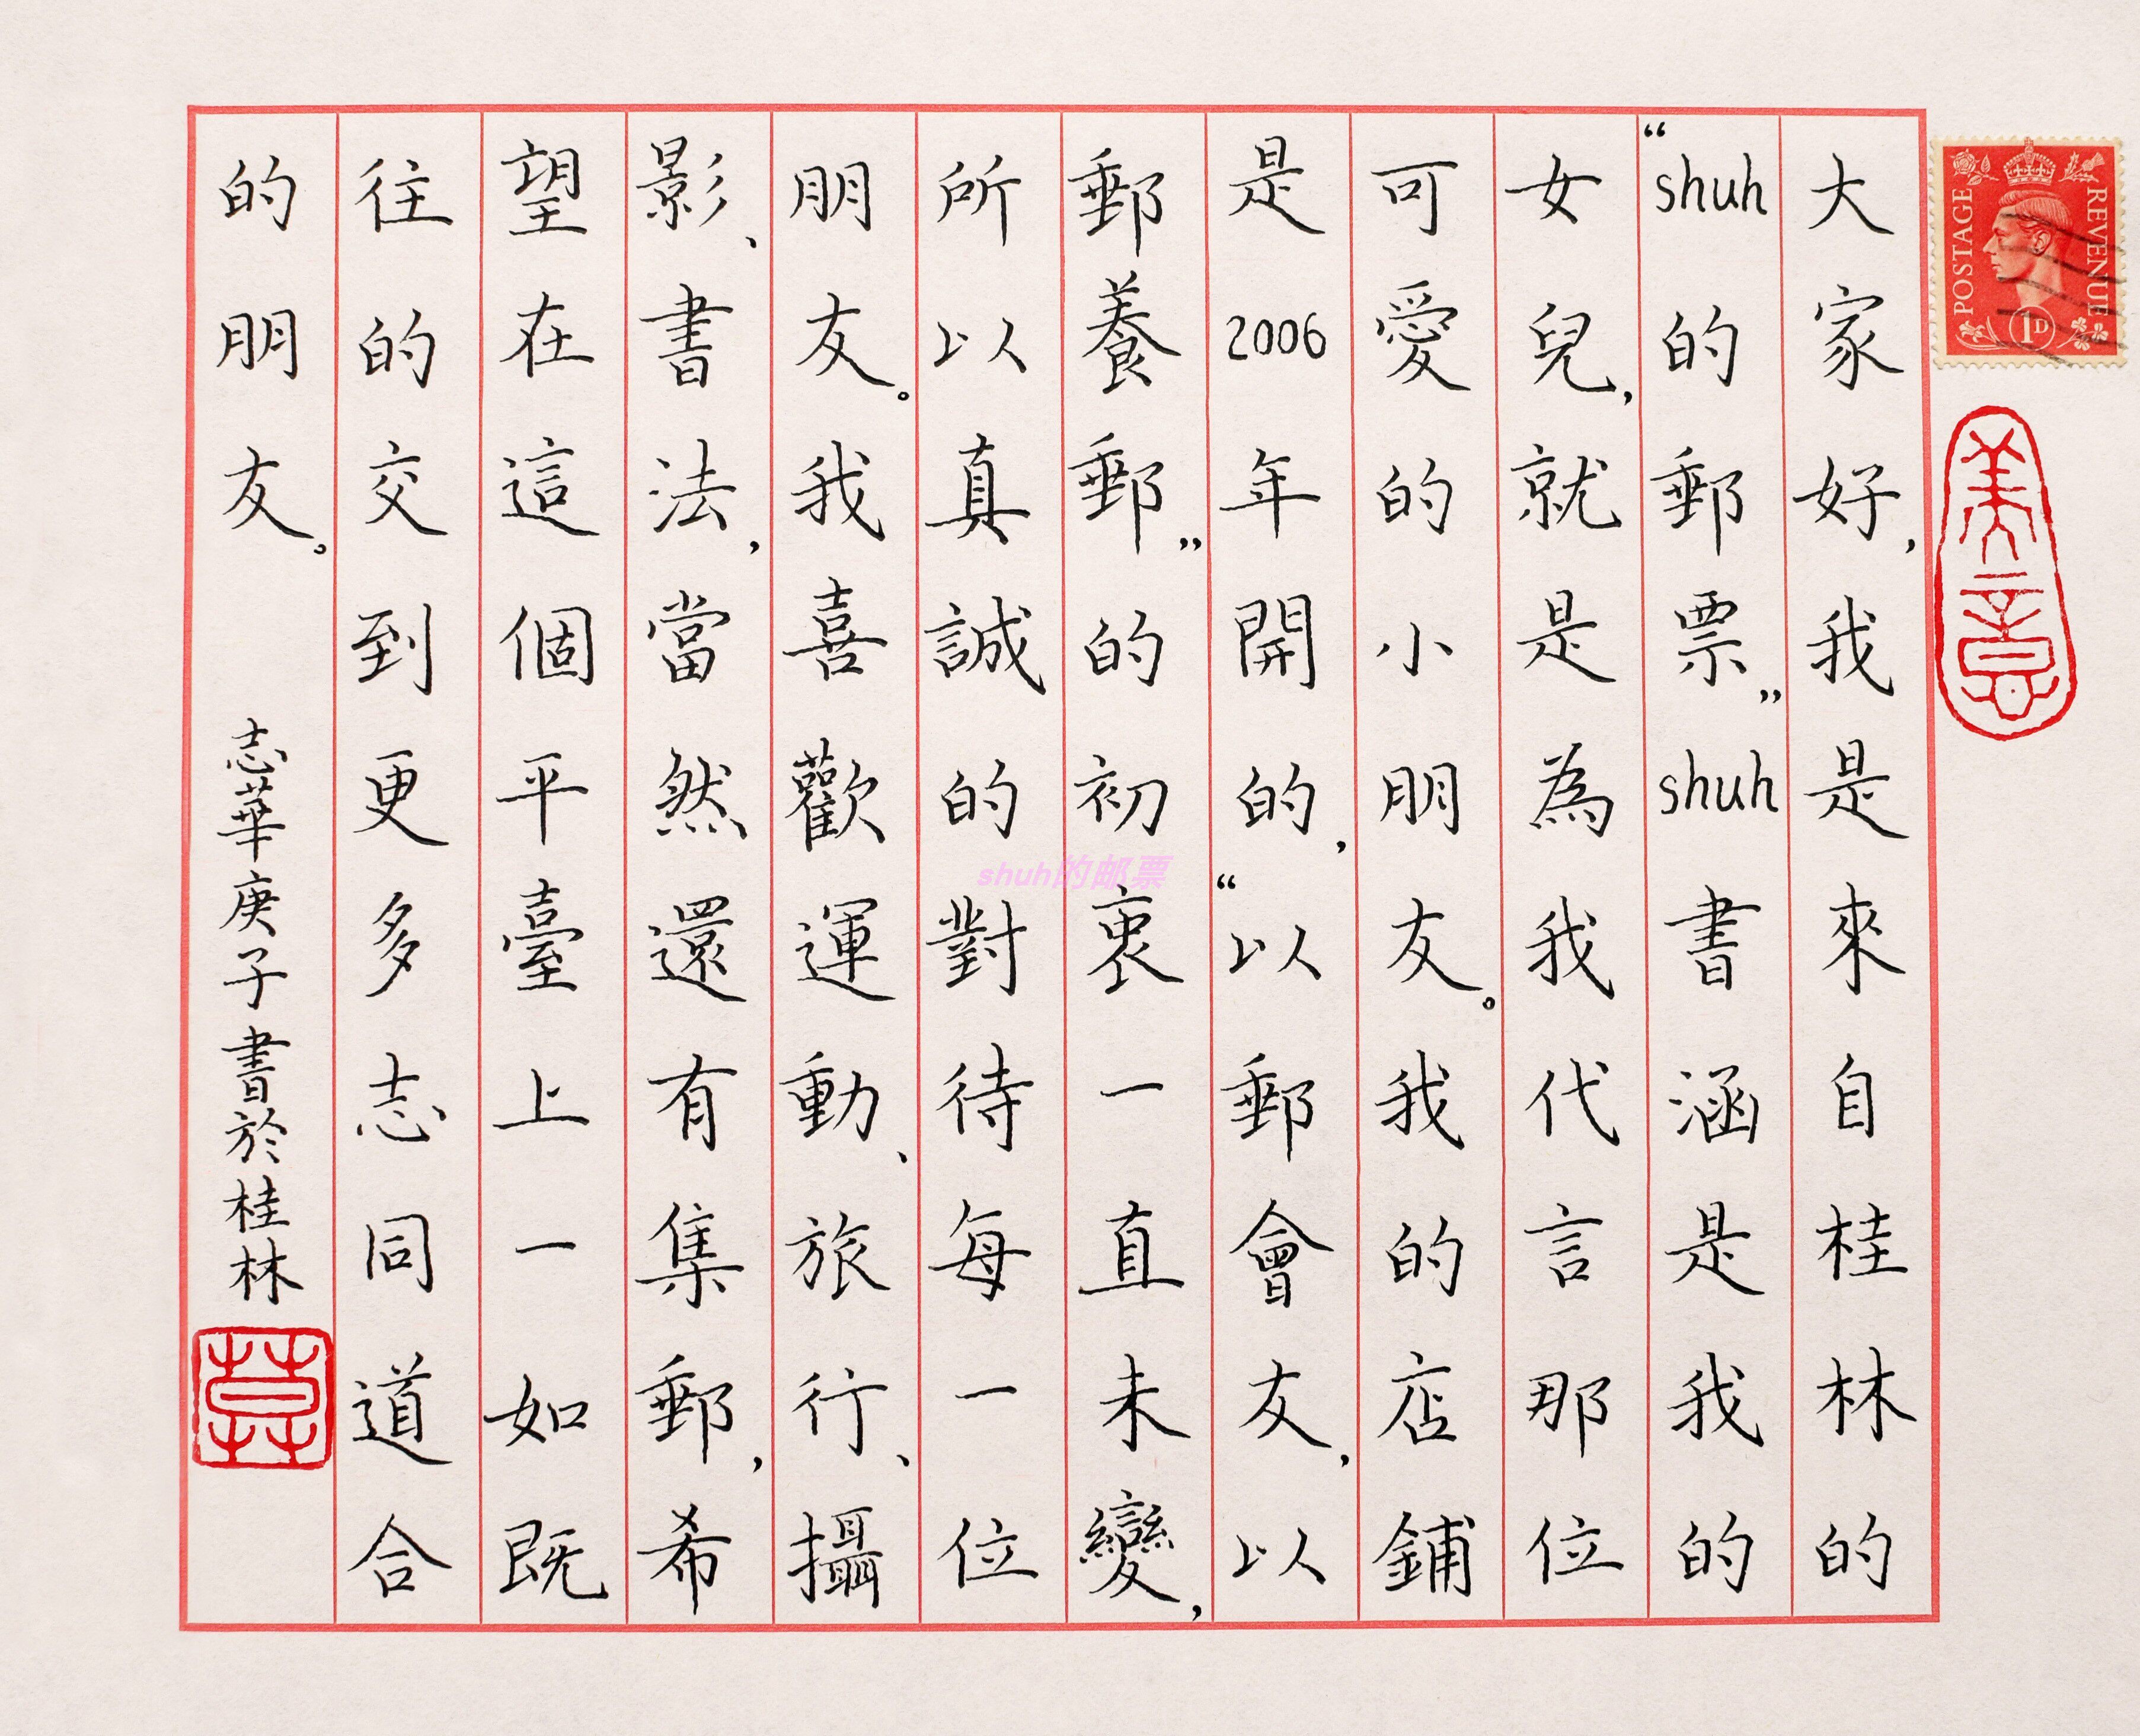 大家好，我是來自桂林的
“shuh的郵票”shuh書涵是我的
女兒，就是為我代言那位
可愛的小朋友。我的店鋪
是2006年開的，“以郵會友，以
郵養郵”的初衷一直未變，
所以真誠的對待每一位
朋友。我喜歡運動、旅行、攝
影、書法，當然還有集郵，希
望在這個平臺上一如既
往的交到更多志同道合
的朋友。 志華庚子書於桂林
POSTAGE
REVENUE
1D
美意
shuh的邮票